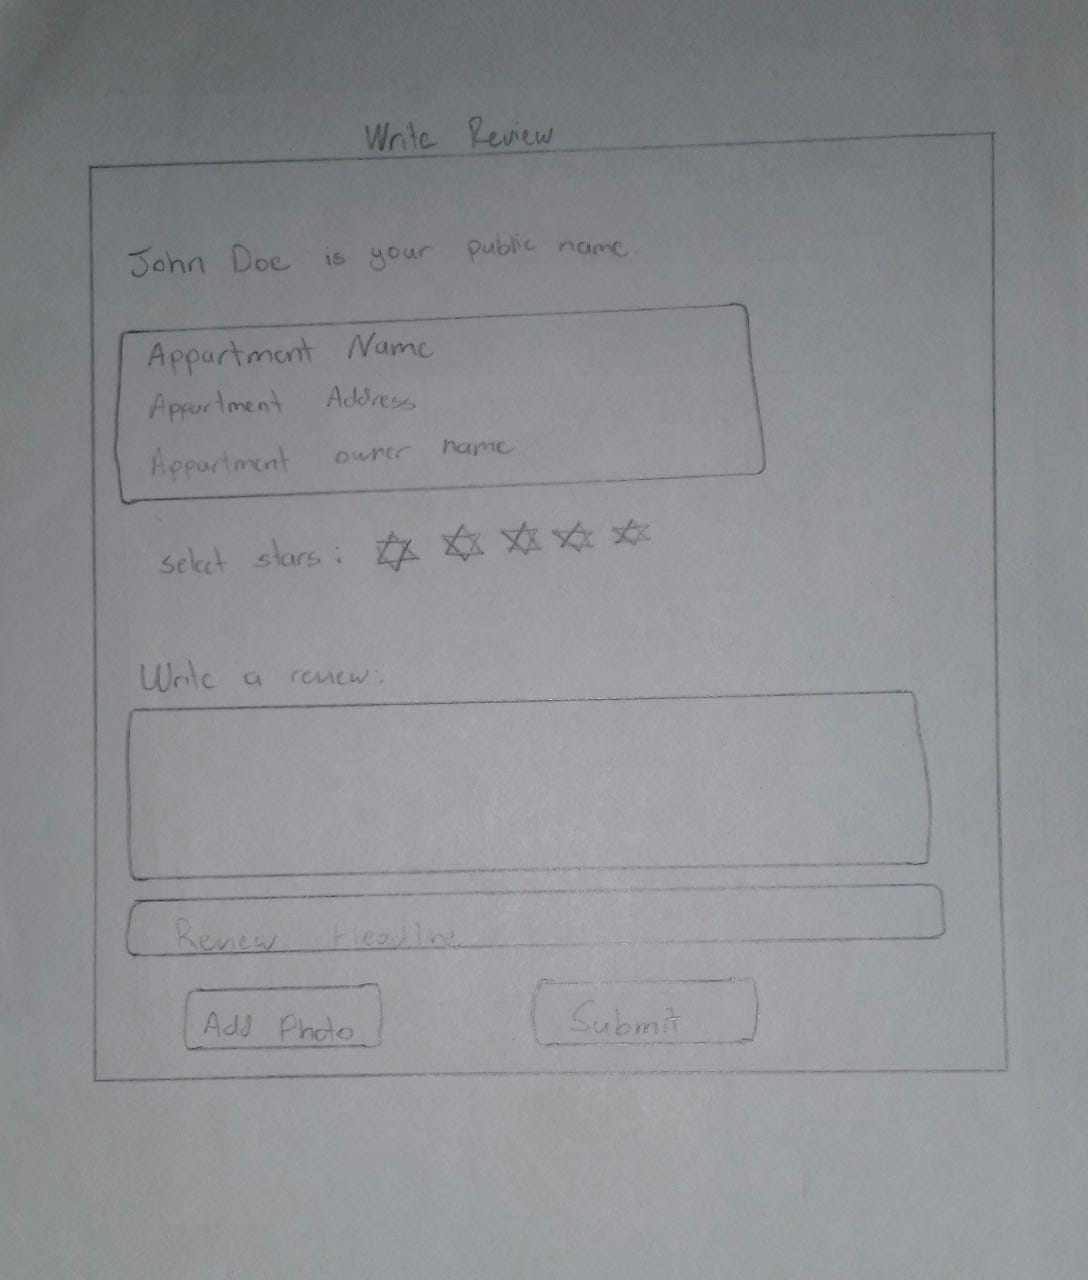 Write Review
John Doe is your public name.
Appartment Name
Appartment Address
Appartment owner name
select stars:
Write a review:
Review Headline
Add Photo
Submit